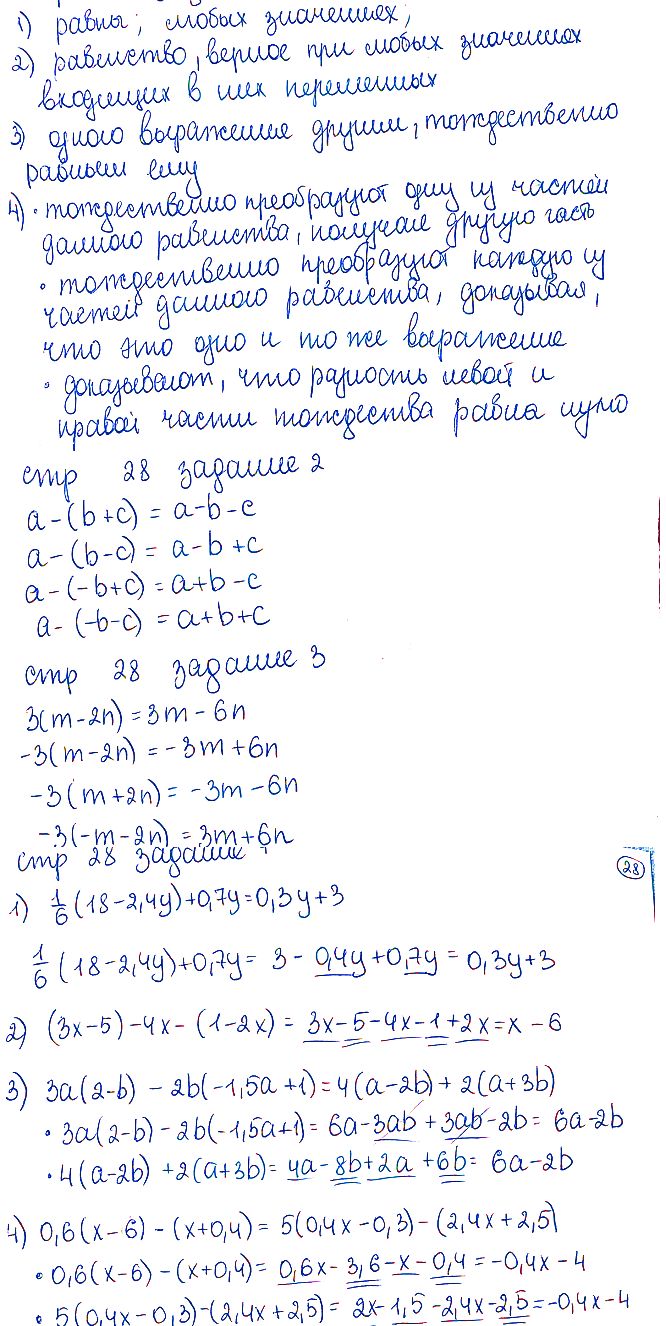 1) равны; любых значениях;
2) равенство, верное при любых значениях
входящих в них переменных
3) одного выражения другим, тождественно
равным ему
4) • тождественно преобразуют одну из частей
данного равенства, получая другую часть
• тождественно преобразуют каждую из
частей данного равенства, доказывая,
что это одно и то же выражение
• доказывают, что разность левой и
правой части тождества равна нулю
стр 28 задание 2
a-(b+c) = a-b-c
a-(b-c) = a-b+c
a-(-b+c) = a+b-c
a-(-b-c) = a+b+c
стр 28 задание 3
3(m-2n) = 3m-6n
-3(m-2n) = -3m+6n
-3(m+2n) = -3m-6n
-3(-m-2n) = 3m+6n
стр 28 задание
28
1) 1/6(18-2,4y)+0,7y=0,3y+3
1/6(18-2,4y)+0,7y= 3-0,4y+0,7y = 0,3y+3
2) (3x-5)-4x-(1-2x) = 3x-5-4x-1+2x=x-6
3) 3a(2-b) - 2b(-1,5a+1)=4(a-2b)+2(a+3b)
• 3a(2-b)-2b(-1,5a+1)= 6a-3ab+3ab-2b= 6a-2b
• 4(a-2b)+2(a+3b)= 4a-8b+2a+6b= 6a-2b
4) 0,6(x-6)-(x+0,4)= 5(0,4x-0,3)-(2,4x+2,5)
• 0,6(x-6)-(x+0,4)= 0,6x-3,6-x-0,4 = -0,4x-4
• 5(0,4x-0,3)-(2,4x+2,5)= 2x-1,5-2,4x-2,5=-0,4x-4